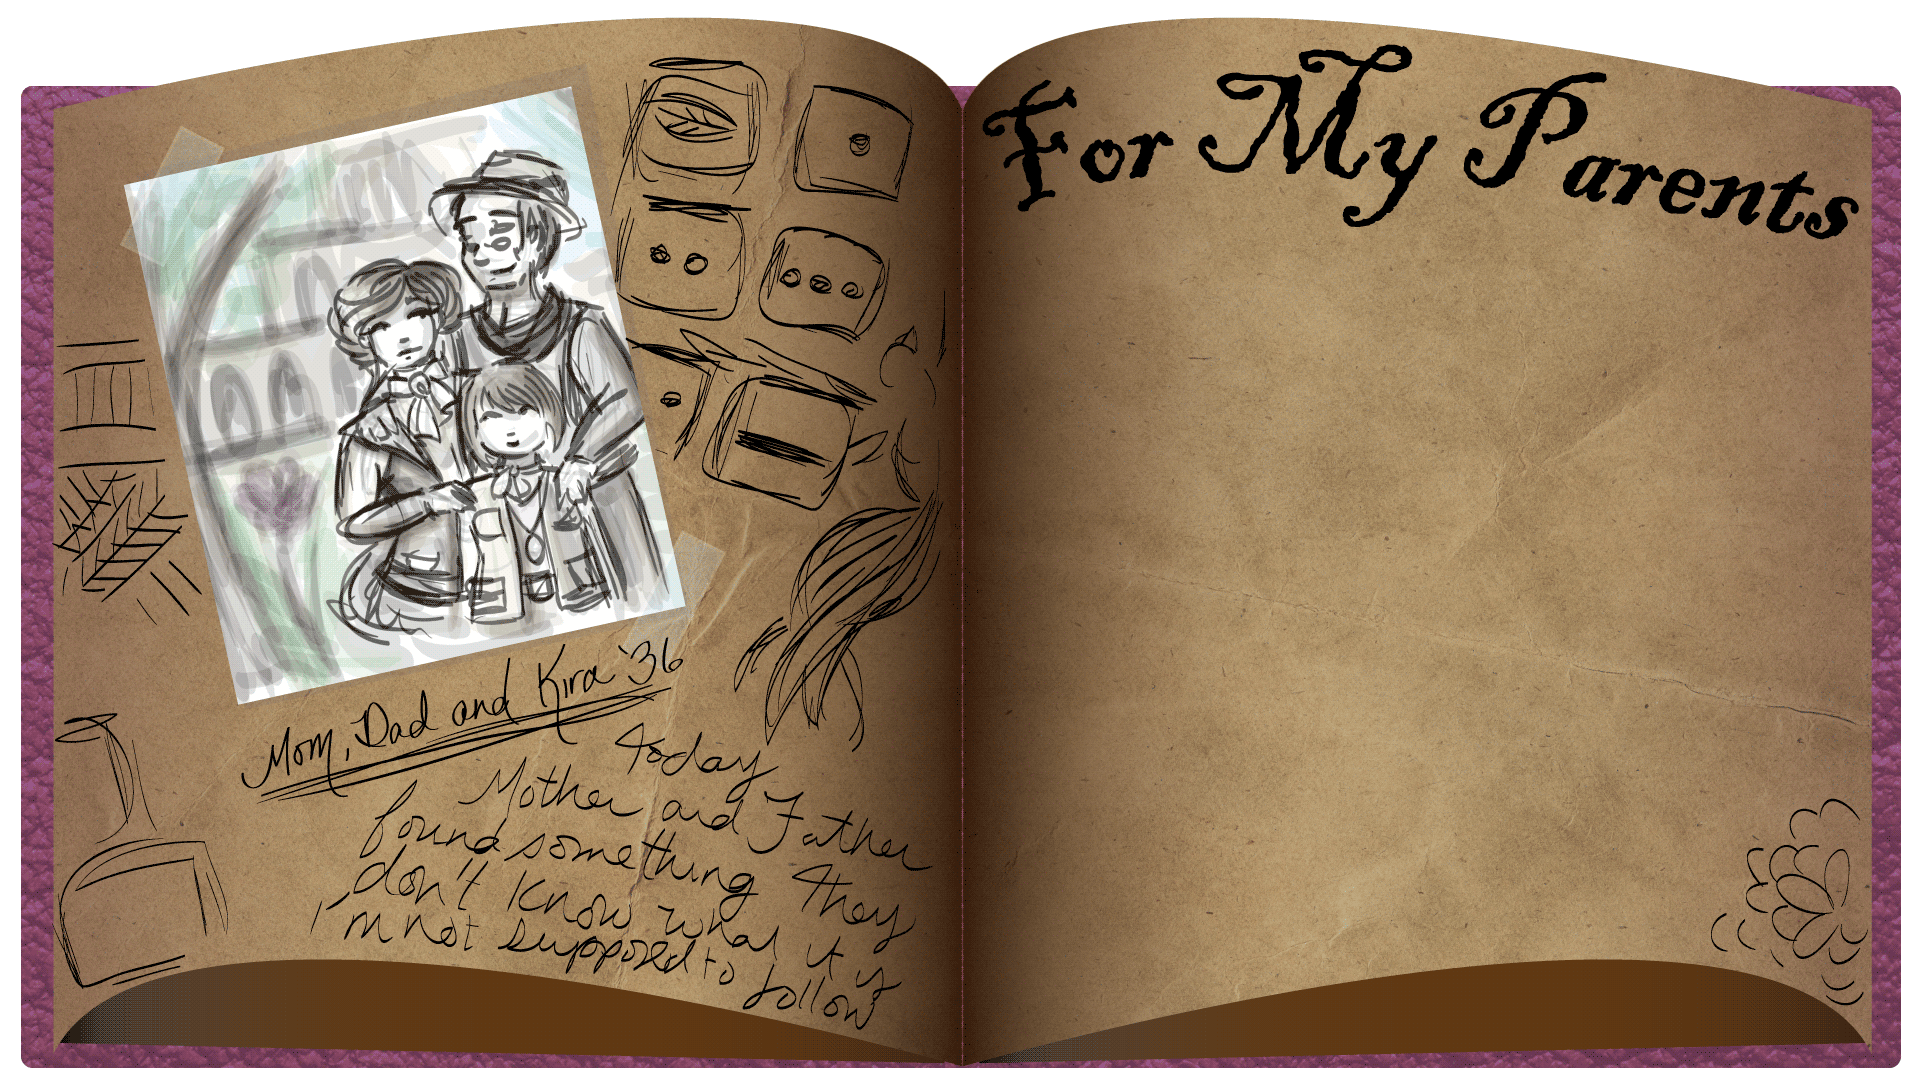 Mom, Dad and Kira '36
Today
Mother and Father
found something they
don't know what it is
I'm not supposed to follow
For My Parents